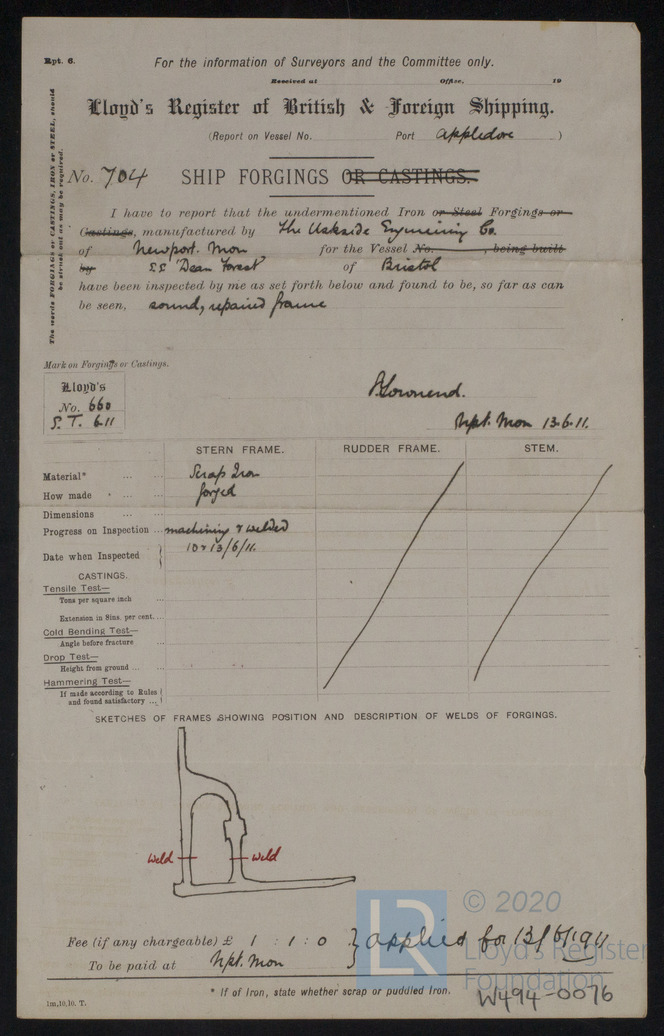 Rpt. 6.
For the information of Surveyors and the Committee only.
Received at Office, 19
Lloyd's Register of British & Foreign Shipping.
(Report on Vessel No. Port Appledore )
No. 704 SHIP FORGINGS OR CASTINGS.
The words FORGINGS or CASTINGS, IRON or STEEL, should
be struck out as may be required.
I have to report that the undermentioned Iron or Steel Forgings or
Castings, manufactured by The Uskside Engineering Co.
of Newport. Mon for the Vessel No. , being built
by SS "Dean Forest" of Bristol
have been inspected by me as set forth below and found to be, so far as can
be seen, sound, repaired frame
Mark on Forgings or Castings.
Lloyd's
No. 660
S.T. 6.11
Npt. Mon 13.6.11.
STERN FRAME. RUDDER FRAME. STEM.
Material* ... ... Scrap Iron
How made ... ... forged
Dimensions ... ...
Progress on Inspection ... machining & welded
Date when Inspected 10 & 13/6/11.
CASTINGS.
Tensile Test—
Tons per square inch ...
Extension in 8ins. per cent. ...
Cold Bending Test—
Angle before fracture ...
Drop Test—
Height from ground ... ...
Hammering Test—
If made according to Rules
and found satisfactory ...
SKETCHES OF FRAMES SHOWING POSITION AND DESCRIPTION OF WELDS OF FORGINGS.
Weld weld
Fee (if any chargeable) £ 1 : 1 : 0 } applied for 13/6/1911
To be paid at Npt. Mon
* If of Iron, state whether scrap or puddled Iron.
1m,10,10. T.
LR
© 2020
Lloyd's Register
Foundation
W494-0076